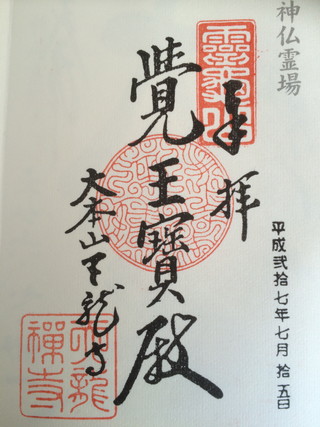 神仏霊場
奉拝
平成弐拾七年七月拾五日
覺王寳殿
大本山天龍寺
天龍
禪寺